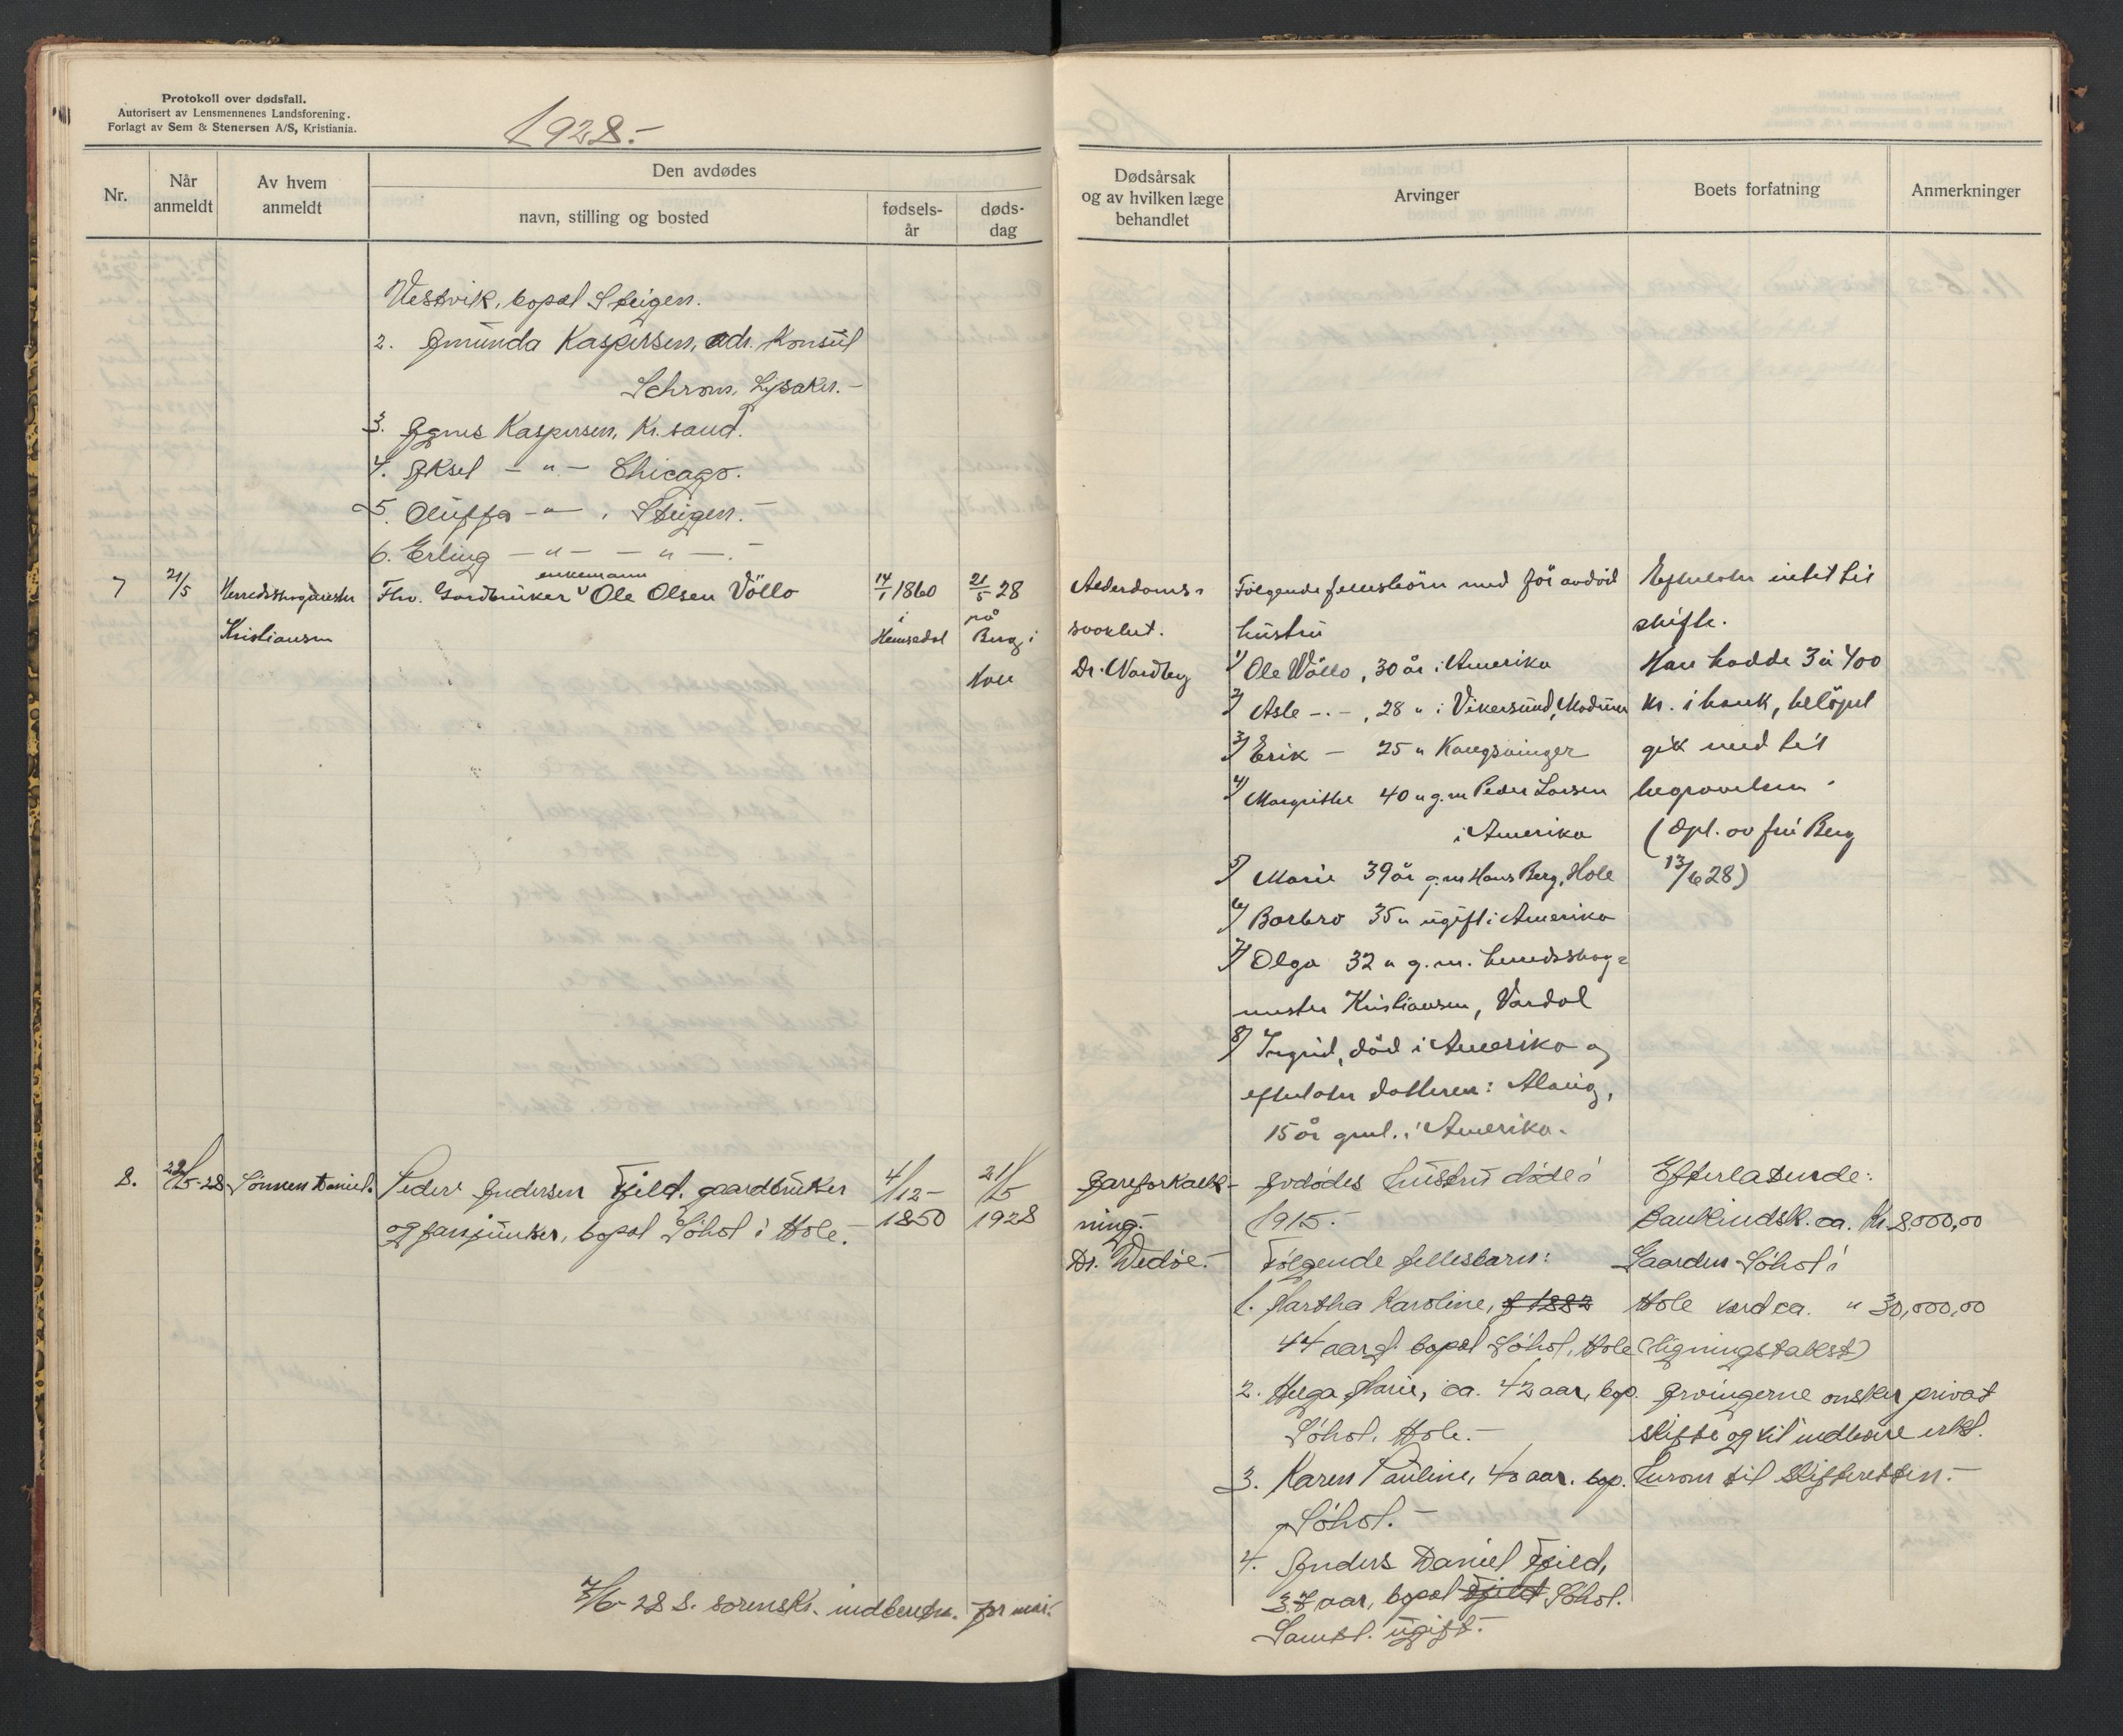 Protokoll over dødsfall.
Autorisert av Lensmennenes Landsforening.
Forlagt av Sem & Stenersen A/S, Kristiania.
1928.-
Nr.
Når anmeldt
Av hvem anmeldt
Den avdødes
navn, stilling og bosted
fødsels-år
døds-dag
Vestvik, bopæl Steigen.
2. Amunda Kaspersen, adr. Konsul
Schrøm, Lysaker.-
3. Agnes Kaspersen, Kr.sand.
4. Aksel -"- Chicago.
5. Oluffa -"-, Steigen.-
6. Erling -"- -"-.-
7 21/5 Herredsskogmester Fhv. Gardbruker enkemann Ole Olsen Völlo 14/1 1860 21/5 28
Kristiansen i Hemsedal på Berg i
Hole
8. 22/5-28 Sønnen Daniel. Peder Andersen Fjeld, gaardbruker 4/12- 21/5
og fanejunker, bopæl Søhol i Hole.- 1850 1928
7/6-28 S. sorenskr. indberetn. for mai.
Dødsårsak og av hvilken læge behandlet
Arvinger
Boets forfatning
Anmerkninger
Alderdoms-
svakhet.
Dr. Nordby
Følgende fellesbörn med för avdöd
hustru
1) Ole Völlo, 30 år i Amerika
2) Asle -.-, 28 " i Vikersund, Modum
3) Erik - 25 " Kongsvinger
4) Margrethe 40 " g.m Peder Larsen
i Amerika
5) Marie 39 år g.m Hans Berg, Hole
6) Barbro 35 " ugift i Amerika
7) Olga 32 " g.m. herredsskog-
mester Kristiansen, Vardal
8) Ingrid, död i Amerika og
efterlater datteren:
15 år gml. i Amerika.
Efterlater intet til
skifte.
Han hadde 3 à 400
kr. i bank, belöpet
gikk med til
begravelsen.
(Opl. av fru Berg
13/6 28)
Aareforkalk-
ning.-
Dr. Wedøe.-
Avdødes hustru døde i
1915.-
Følgende fellesbarn:
1. Martha Karoline, f 1882
44 aar g. bopæl Søhol, Hole
2. Helga Marie, ca. 42 aar, bop.
Søhol, Hole.-
3. Karen Pauline, 40 aar. bop.
Søhol.-
4. Anders Daniel Fjeld,
37 aar, bopæl Fjeld Søhol.
Samtl. ugift.-
Efterlatende:
Bankindsk. ca. Kr 8.000,00
Gaarden Søhol i
Hole verd ca. " 30,000,00
(ligningstakst)
Arvingerne ønsker privat
skifte og vil indlevere erkl.
herom til skifteretten.-